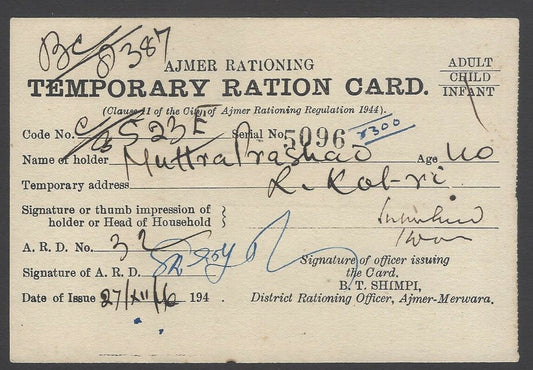 BC 8387
AJMER RATIONING
TEMPORARY RATION CARD.
ADULT
CHILD
INFANT
(Clause 11 of the City of Ajmer Rationing Regulation 1944).
Code No. 523E Serial No. 5096
Name of holder Muttra Prashad Age 40
Temporary address
Signature or thumb impression of
holder or Head of Household }
A. R. D. No. 32
Signature of A. R. D.
Signature of officer issuing
the Card.
B. T. SHIMPI,
Date of Issue 27/XII/46 194 .
District Rationing Officer, Ajmer-Merwara.